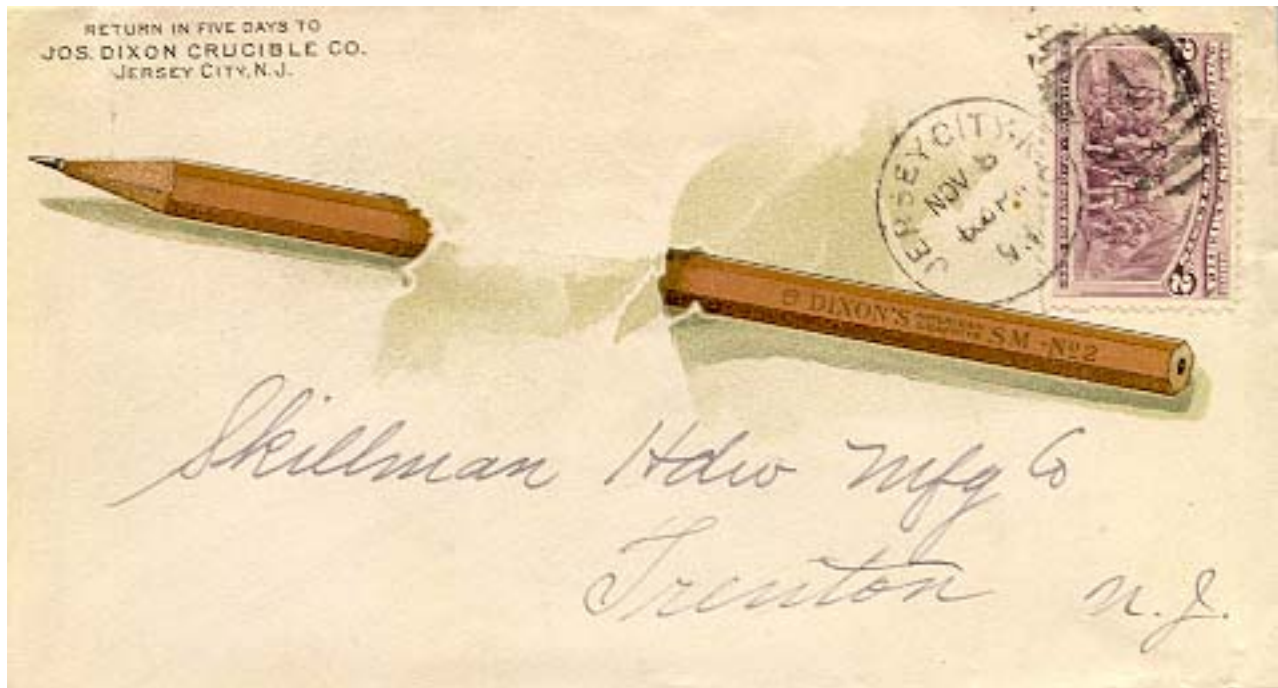 RETURN IN FIVE DAYS TO
JOS. DIXON CRUCIBLE CO.
JERSEY CITY, N.J.
JERSEY CITY, N.J.
NOV 6
DIXON'S SM - No2
Skillman Hdw Mfg Co
Trenton N.J.